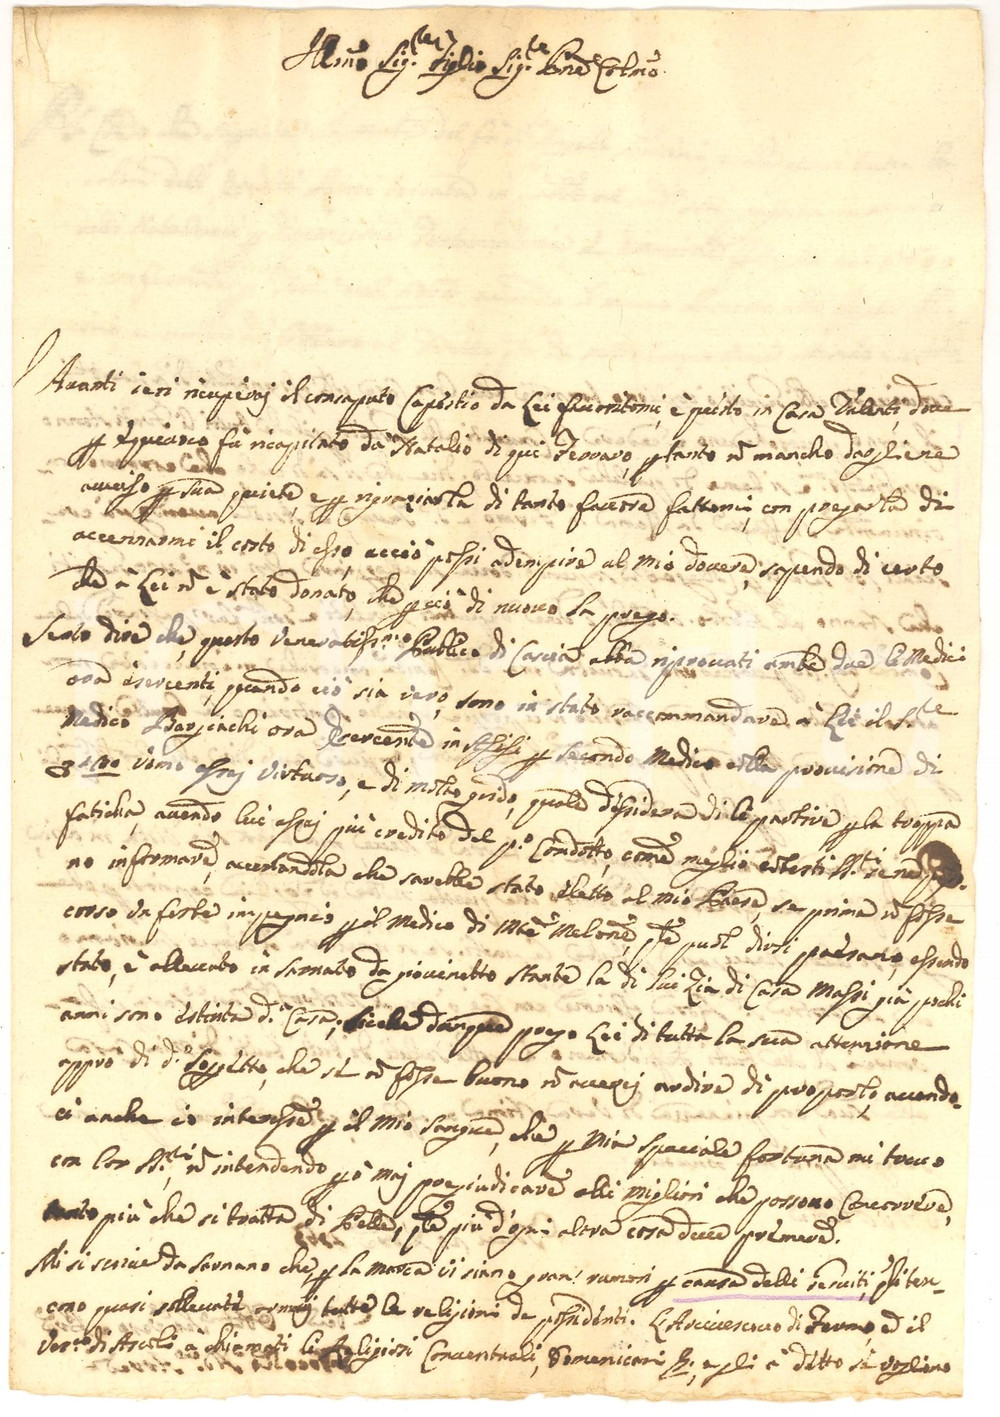 Illmo Sig.r Figlio Sig.re Pne Colmo
Avanti ieri ricuperai il consaputo Capestio da Lei favoritomi, e questo in Casa Valenti, dove
fù ricapitato da Natalio di qui Ferraro, p tanto ñ mancho dagliene
avviso p sua quiete, e p ringraziarla di tanto favore fattomi, con pregarla di
accennarmi il costo di esso, acciò possi adempire al mio dovere, sapendo di certo
che à Lei ñ è stato donato, che p ciò di nuovo la prego.
Sento dire che questo venerabiliss.mo Publico di Cascia abbia riprovati ambe due le Medici
ora esercenti, quando ciò sia vero, sono in stato raccommandare à Lei il
Medico ora esercente in p secondo Medico colla provisione di
uomo assai virtuoso, e di molto grido, quale desidera di là partire p la troppa
faticha, avendo lui assai più credito del p.o Condotto, come meglio
no informare, accertandola che sarebbe stato eletto al mio Paese, se prima ñ fosse
corso un forte impegnio p il Medico di Mte Melone, che puol dirsi paesano, essendo
stato, e allevato in Sarnano da giovinetto stante la di lui Zia di Casa Massi già pochi
anni sono estinta d.a Casa; dunque prego Lei di tutta la sua attenzione
appo di d.o Soggetto, che se ñ fosse buono ñ averei ardire di proporlo, avendo-
ci anche io interesse p il mio sangue, che p mia speciale fortuna mi trovo
con lor SS.ri, ñ intendendo pò mai pregiudicare alli migliori che possono concorrere,
tanto più che si tratta di Pelle, che più d'ogni altra cosa deve premere.
Mi si scrive da Sarnano che p la Marca vi siano gran rumori p causa delli Gesuiti,
cono quasi sollevate tutte le religioni de possidenti. L'Arcivescovo di Fermo, ed il
Vesc.o di Ascoli à chiamati li Religiosi Conventuali, Domenicani &, e gli à ditto se vogliono